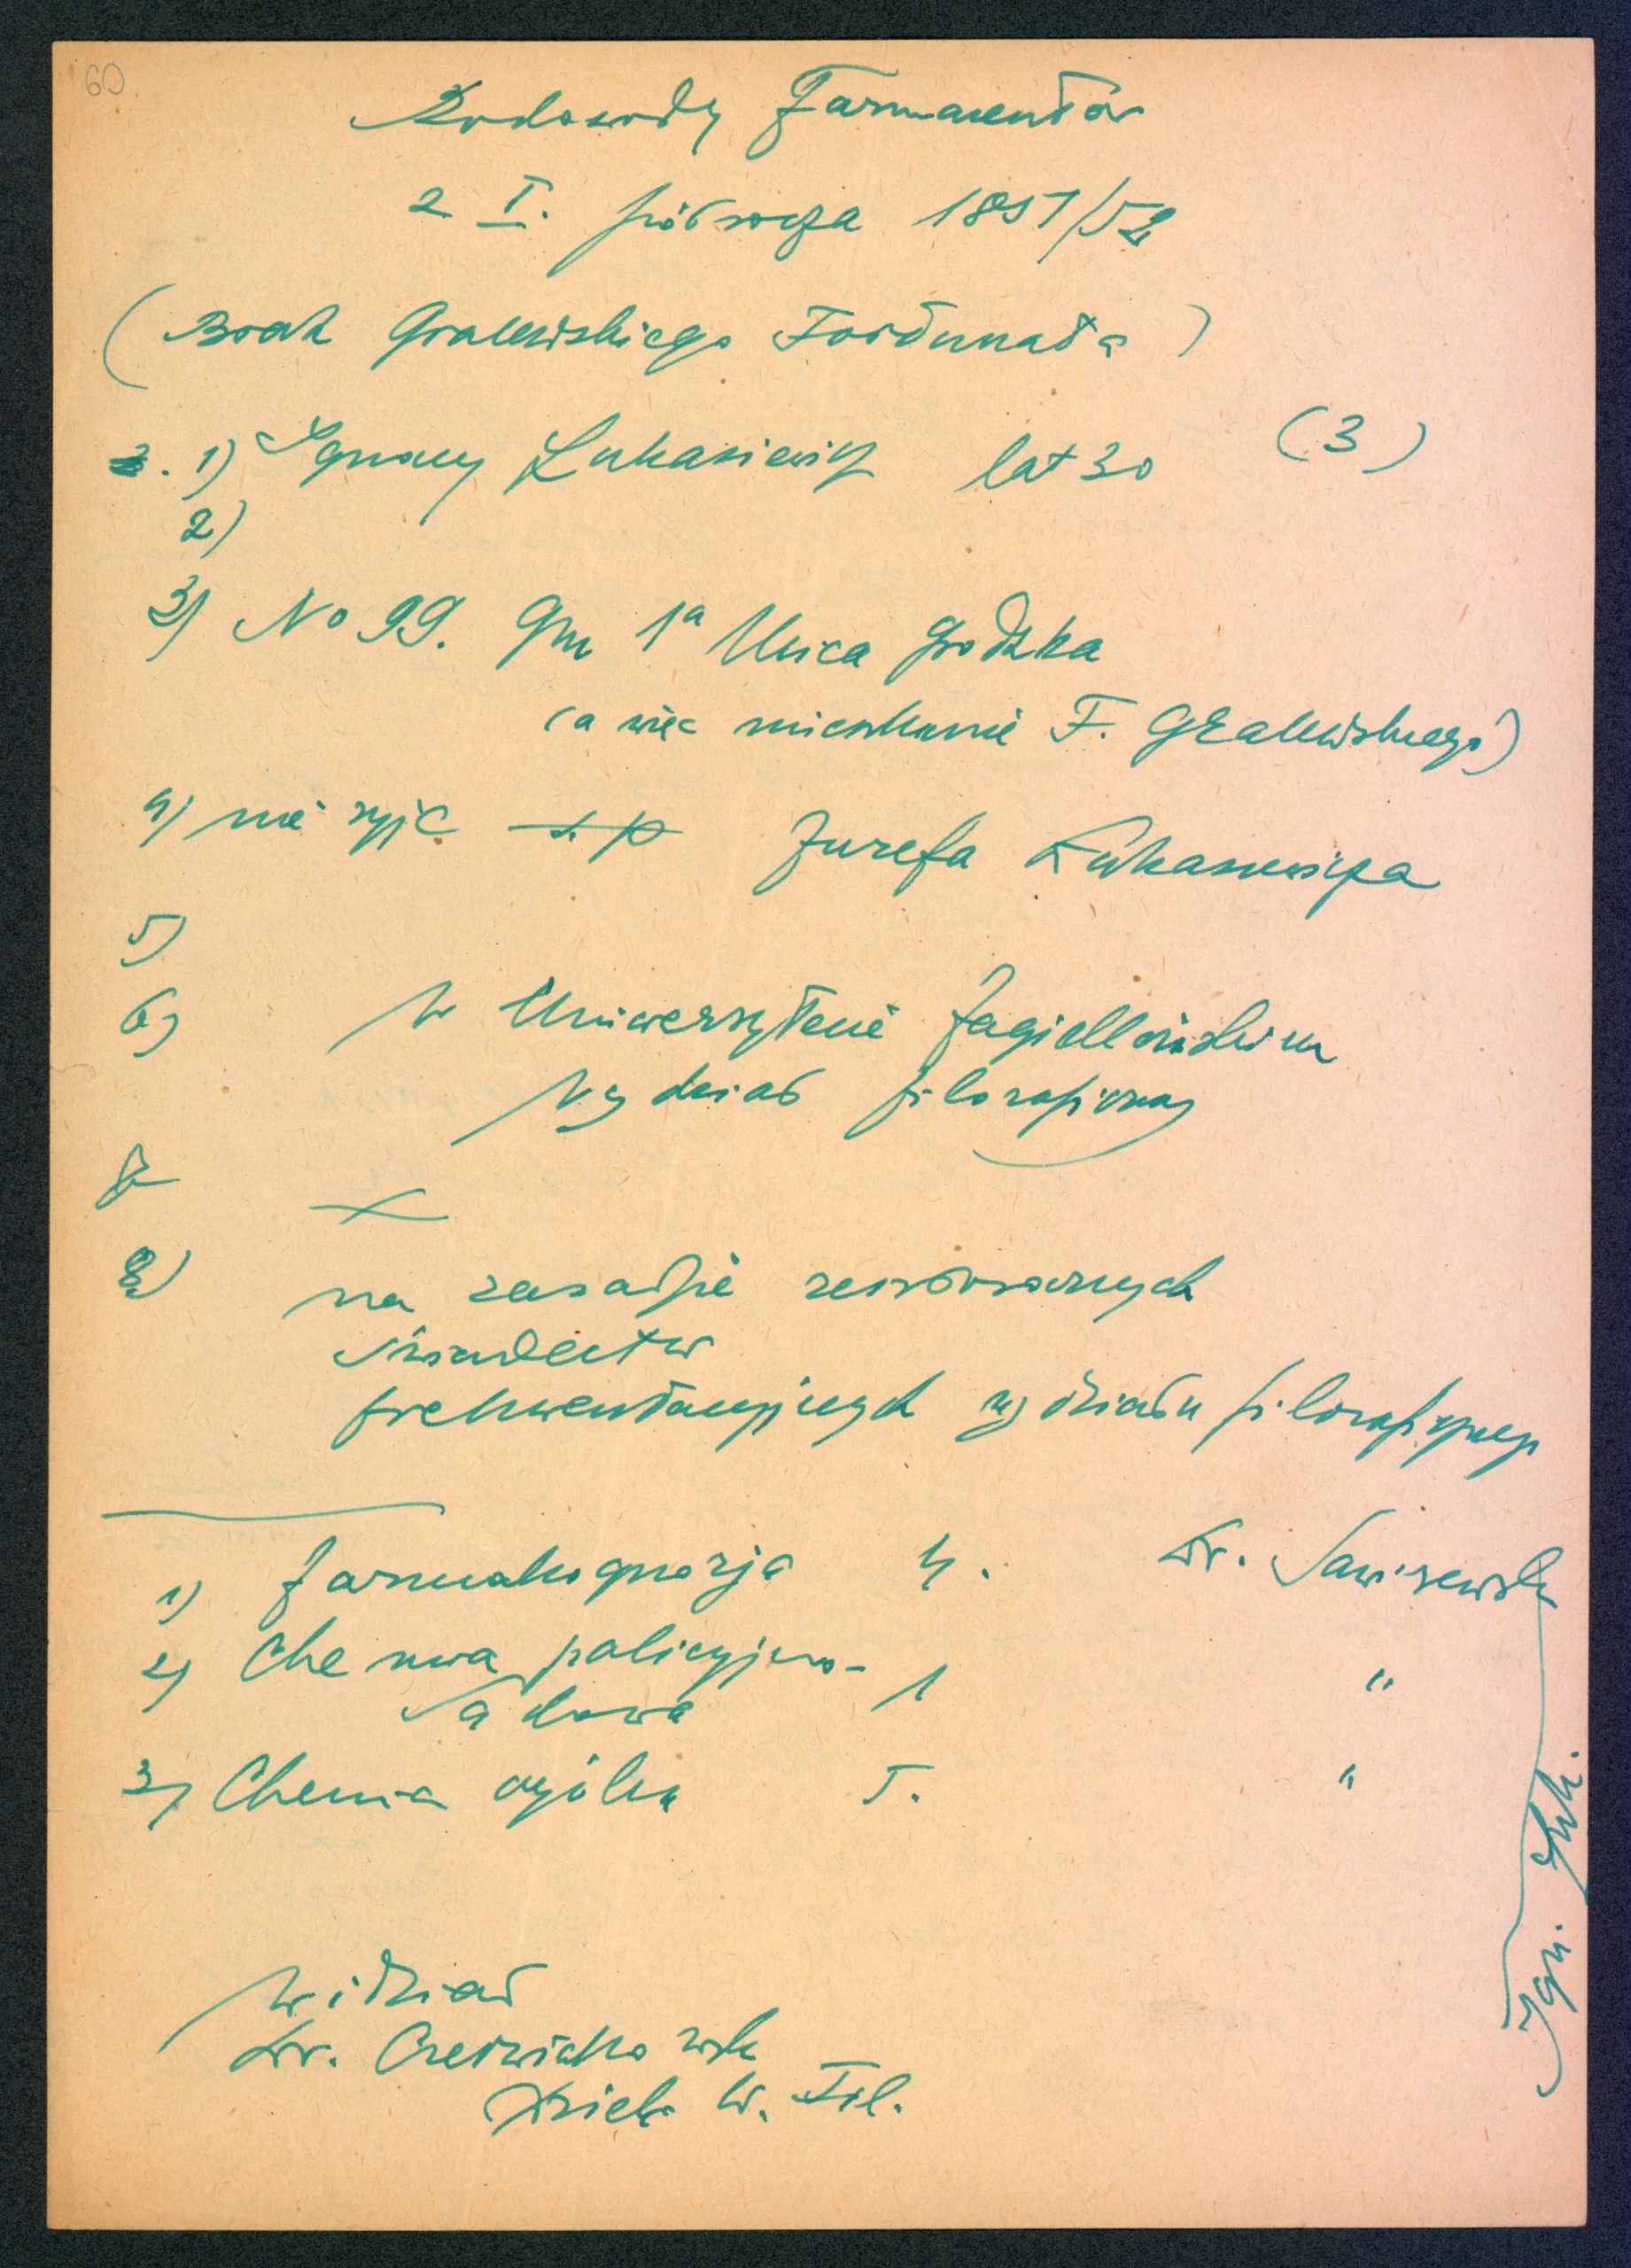 60
Rodowody Farmaceutów
z I. półrocza 1851/52
(Brak Gralewskiego Fortunata)
1) Ignacy Łukasiewicz lat 30 (3)
2)
3) No 99. Gm 1a Ulica Grodzka
(a więc mieszkanie F. Gralewskiego)
4) nie żyje Józefa Łukasiewicza
5)
6) W Uniwersytecie Jagiellońskim
Wydział filozoficzny
7
8) na zasadzie
świadectw
frekwentacyjnych wydziału filozoficznego
1) Farmakognozja 4. Dr. Sawiczewski
2) Chemia policyjno- 1 "
sądowa
3) Chemia ogólna 5. "
Ign. Łuk.
Widział
Dr. Czerwiakowski
Dzieka W. Fil.